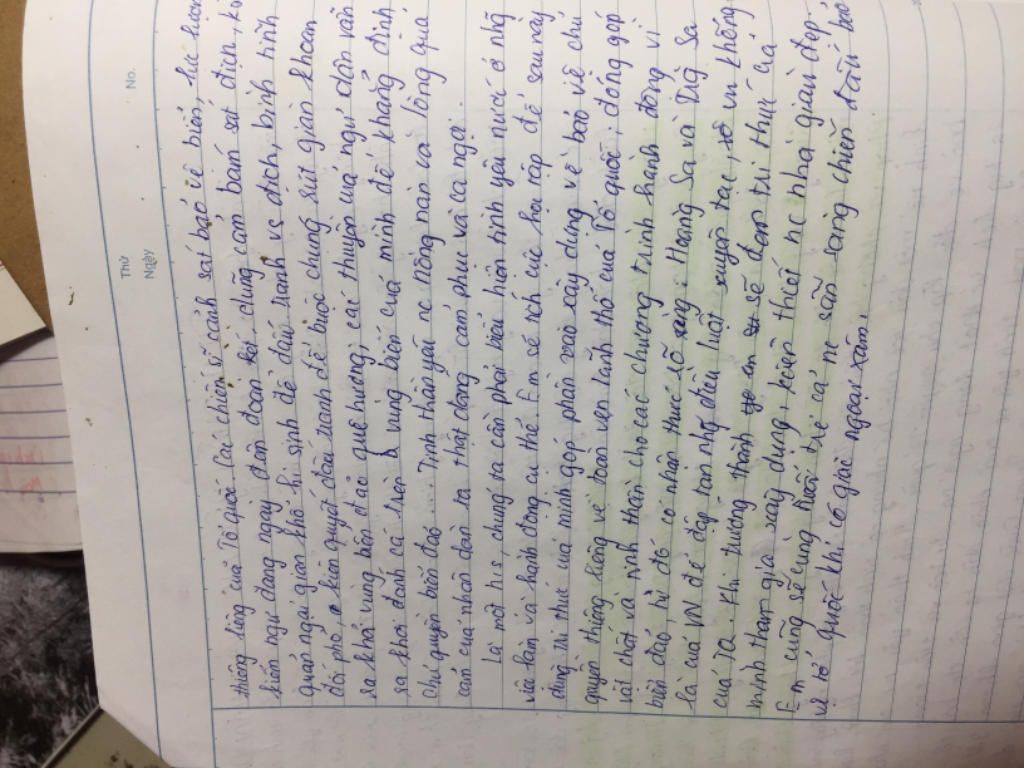 Thứ
Ngày
No.
thiêng liêng của Tổ quốc. Các chiến sĩ cảnh sát bảo vệ biển, lực lượng
kiểm ngư đang ngày đêm đoàn kết, dũng cảm bám sát địch, ko
quản ngại gian khổ hi sinh để đấu tranh vs địch, bình tĩnh
đối phó, kiên quyết đấu tranh để buộc chúng rút giàn khoan
ra khỏi vùng biển của quê hương, các thuyền của ngư dân vẫn
ra khơi đánh cá trên vùng biển của mình để khẳng định
chủ quyền biển đảo. Tinh thần yêu nc nồng nàn và lòng quả
cảm của nhân dân ta thật đáng cảm phục và ca ngợi.
Là một h/s, chúng ta cần phải biểu hiện tình yêu nước ở những
việc làm và hành động cụ thể. Em sẽ tích cực học tập để sau này
dùng tri thức của mình góp phần vào xây dựng và bảo vệ chủ
quyền thiêng liêng và toàn vẹn lãnh thổ của Tổ quốc, đóng góp
vật chất và tinh thần cho các chương trình hành động vì
biển đảo, từ đó có nhận thức rõ ràng: Hoàng Sa và Trg Sa
là của VN để đập tan những điều luật xuyên tạc, vu khống
của TQ. Khi trưởng thành em sẽ đem tri thức của
mình tham gia xây dựng, kiến thiết nc nhà giàu đẹp.
Em cũng sẽ cùng tuổi trẻ cả nc sẵn sàng chiến đấu bảo
vệ tổ quốc khi có giặc ngoại xâm!